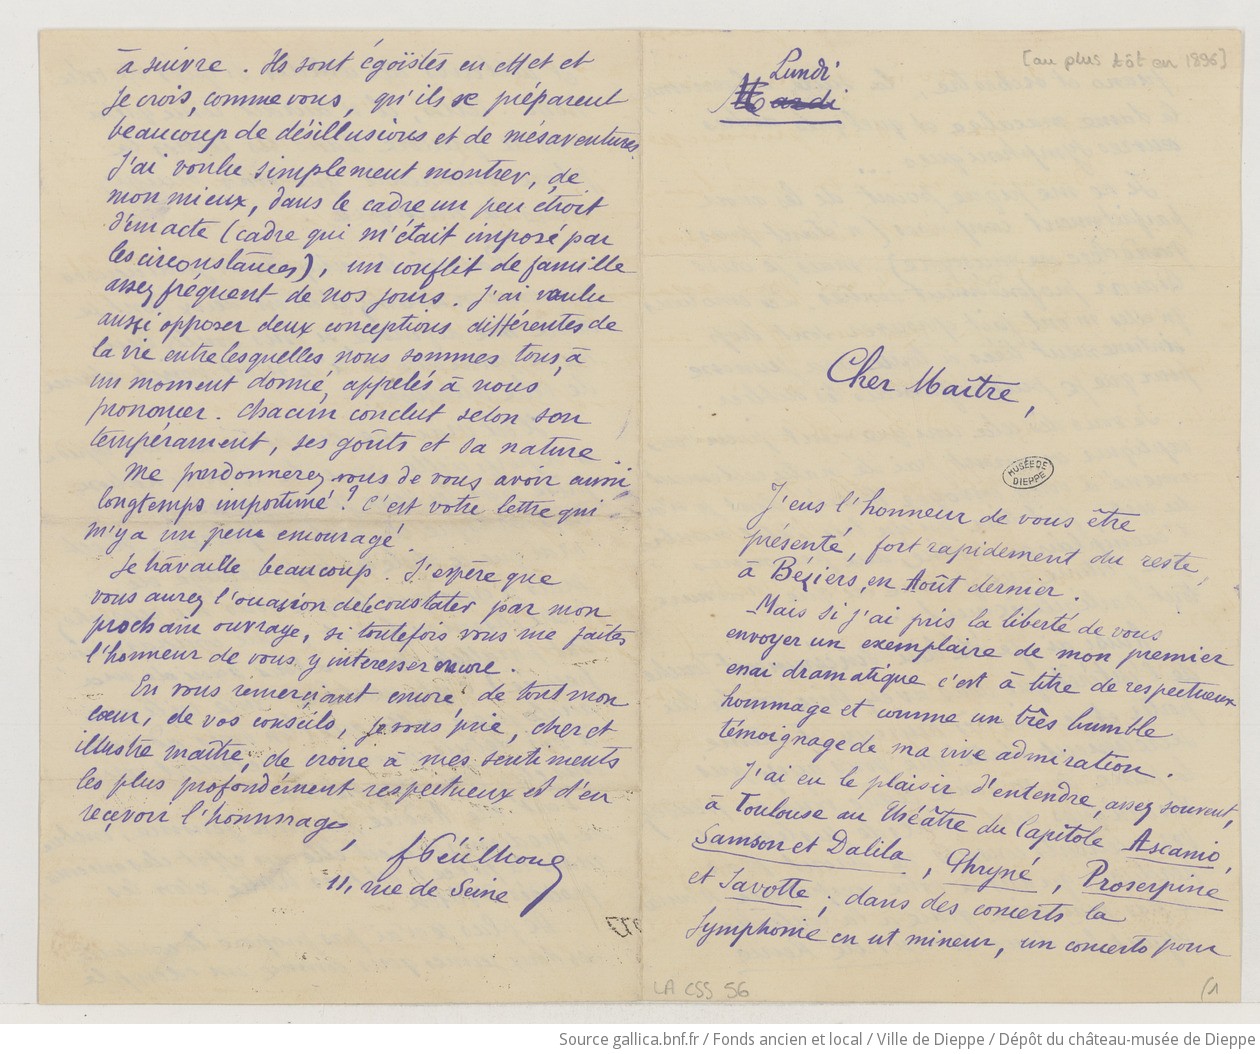 à suivre. Ils sont égoïstes en effet et
je crois, comme vous, qu'ils se préparent
beaucoup de désillusions et de mésaventures.
J'ai voulu simplement montrer, de
mon mieux, dans le cadre un peu étroit
d'un acte (cadre qui m'était imposé par
les circonstances), un conflit de famille
assez fréquent de nos jours. J'ai voulu
aussi opposer deux conceptions différentes de
la vie entre lesquelles nous sommes tous, à
un moment donné, appelés à nous
prononcer. Chacun conclut selon son
tempérament, ses goûts et sa nature.
Me pardonnerez vous de vous avoir ainsi
longtemps importuné? C'est votre lettre qui
m'y a un peu encouragé.
Je travaille beaucoup. J'espère que
vous aurez l'occasion de le constater par mon
prochain ouvrage, si toutefois vous me faites
l'honneur de vous y intéresser encore.
En vous remerciant encore, de tout mon
cœur, de vos conseils, je vous prie, cher et
illustre maître, de croire à mes sentiments
les plus profondément respectueux et d'en
recevoir l'hommage,
11, rue de Seine
[au plus tôt en 1896]
Lundi
Mardi
Cher Maître,
MUSÉE DE
DIEPPE
J'eus l'honneur de vous être
présenté, fort rapidement du reste,
à Béziers, en Août dernier.
Mais si j'ai pris la liberté de vous
envoyer un exemplaire de mon premier
essai dramatique c'est à titre de respectueux
hommage et comme un très humble
témoignage de ma vive admiration.
J'ai eu le plaisir d'entendre, assez souvent,
à Toulouse au Théâtre du Capitole Ascanio,
Samson et Dalila, Phryné, Proserpine
et Javotte; dans des concerts la
Symphonie en ut mineur, un concerto pour
LA CSS 56
(1
Source gallica.bnf.fr / Fonds ancien et local / Ville de Dieppe / Dépôt du château-musée de Dieppe